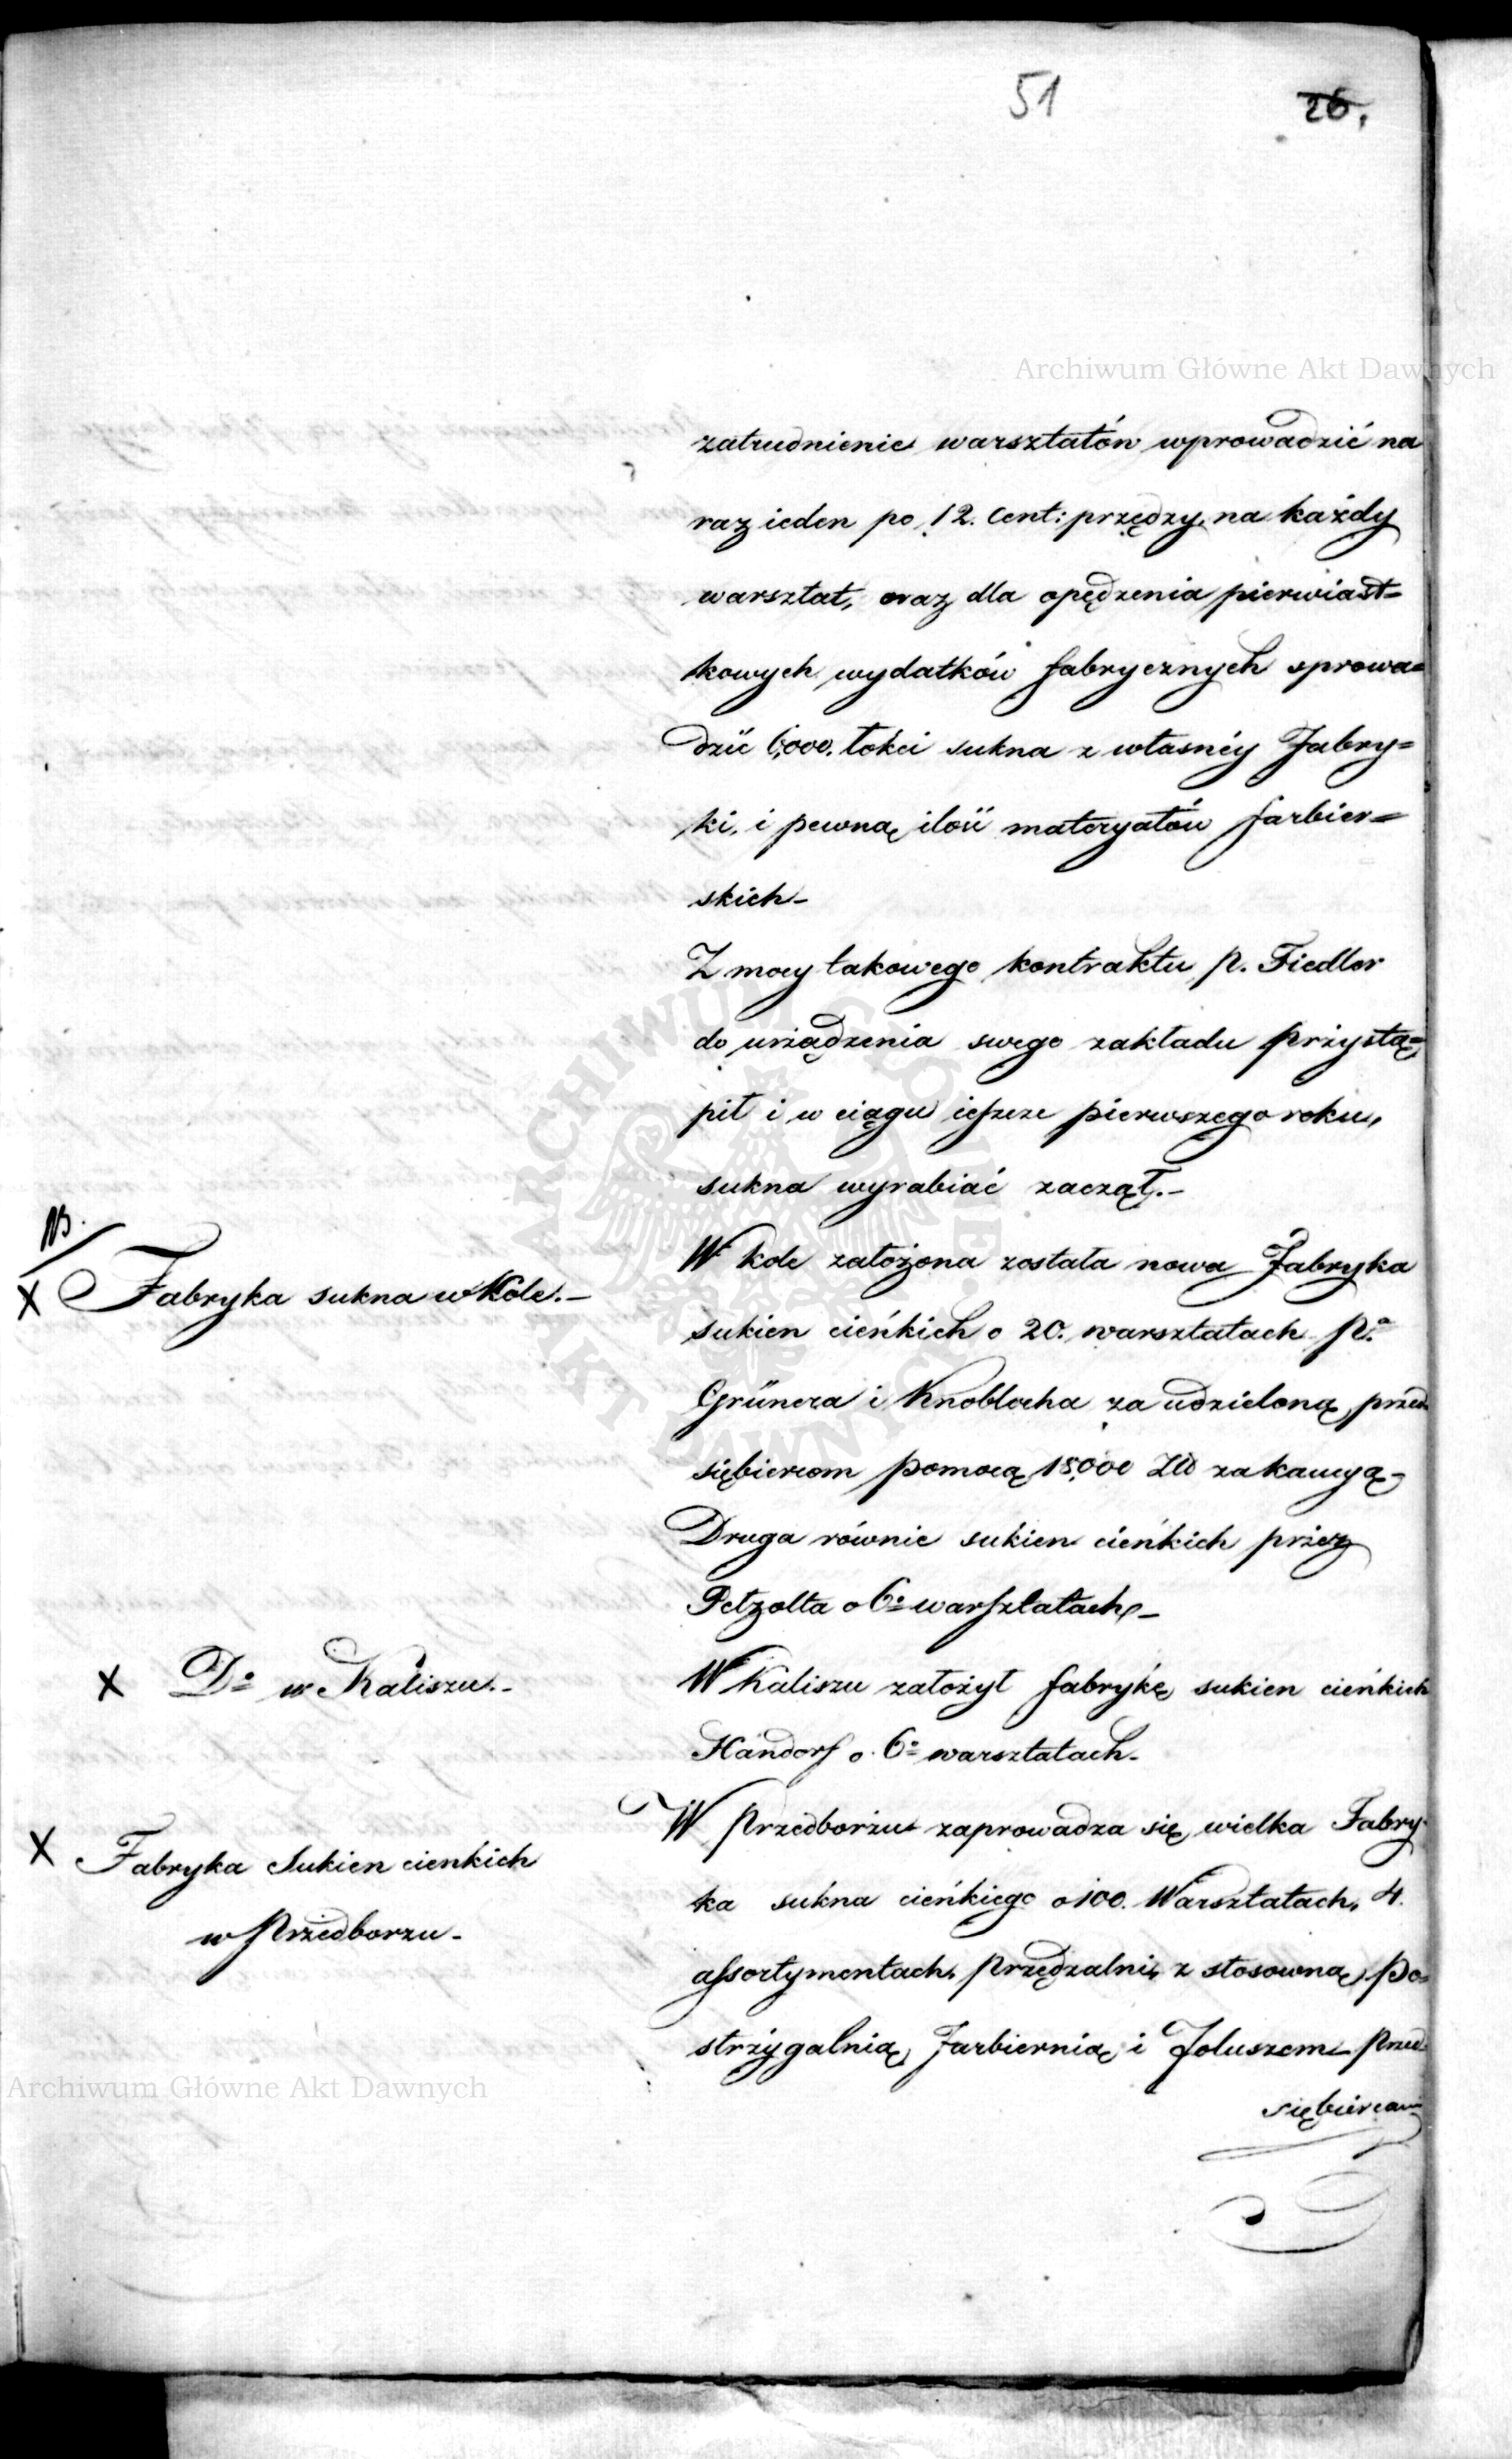 51
26.
Archiwum Główne Akt Dawnych
zatrudnienie warsztatów wprowadzić na
raz ieden po 12. Cent: przędzy, na każdy
warsztat, oraz dla opędzenia pierwiast=
kowych wydatków fabrycznych sprowa=
dzić 6,000. łokci sukna z własnéy Fabry=
ki, i pewną ilość materyałów farbier=
skich-
Z mocy takowego kontraktu p. Fiedler
do urządzenia swego zakładu przystą=
pił i w ciągu ieszcze pierwszego roku,
sukna wyrabiać zaczął.-
NB.
X Fabryka sukna w Kole.-
W Kole założona została nowa Fabryka
sukien cieńkich o 20. warsztatach P.a
Grünera i Knoblocha za udzieloną przed
siębiercom pomocą 18,000 Złł za kaucyą-
Druga równie sukien cieńkich przez
Petzolta o 6.= warsztatach,-
X D.o w Kaliszu.-
W Kaliszu założył fabrykę sukien cieńkich
Handorf o 6.= warsztatach-
X Fabryka Sukien cienkich
w Przedborzu-
W Przedborzu zaprowadza się wielka Fabry
ka sukna cieńkiego o 100. Warsztatach, 4.
assortymentach, Przędzalni, z stosowną, po=
strzygalnią, Farbiernią, i Foluszem- Przed
siębiercami
Archiwum Główne Akt Dawnych
ARCHIWUM GŁÓWNE AKT DAWNYCH